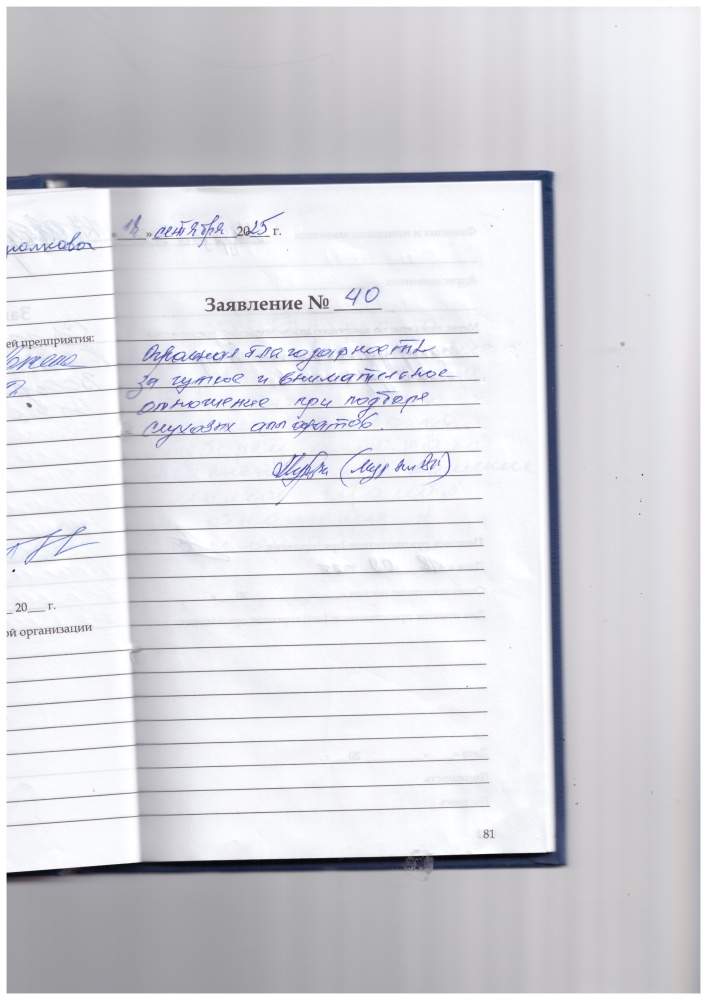 « 18 » сентября 2025 г.
Заявление № 40
ей предприятия:
Огромная благодарность
за чуткое и внимательное
отношение при подборе
слуховых аппаратов.
20___ г.
ой организации
81